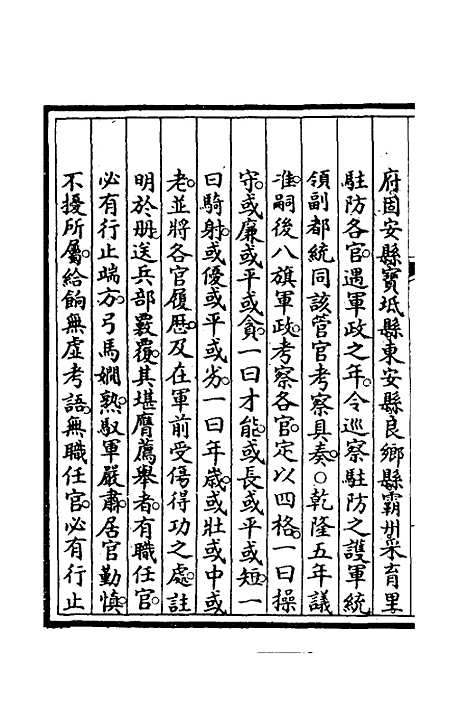 府固安縣寶坻縣東安縣良鄉縣霸州采育里
駐防各官遇軍政之年令巡察駐防之護軍統
領副都統同該管官考察具奏○乾隆五年議
准嗣後八旗軍政考察各官定以四格一曰操
守或廉或平或貪一曰才能或長或平或短一
曰騎射或優或平或劣一曰年歲或壯或中或
老並將各官履歷及在軍前受傷得功之處註
明於册送兵部覈覆其堪膺薦舉者有職任官
必有行止端方弓馬嫻熟馭軍嚴肅居官勤慎
不擾所屬給餉無虛考語無職任官必有行止